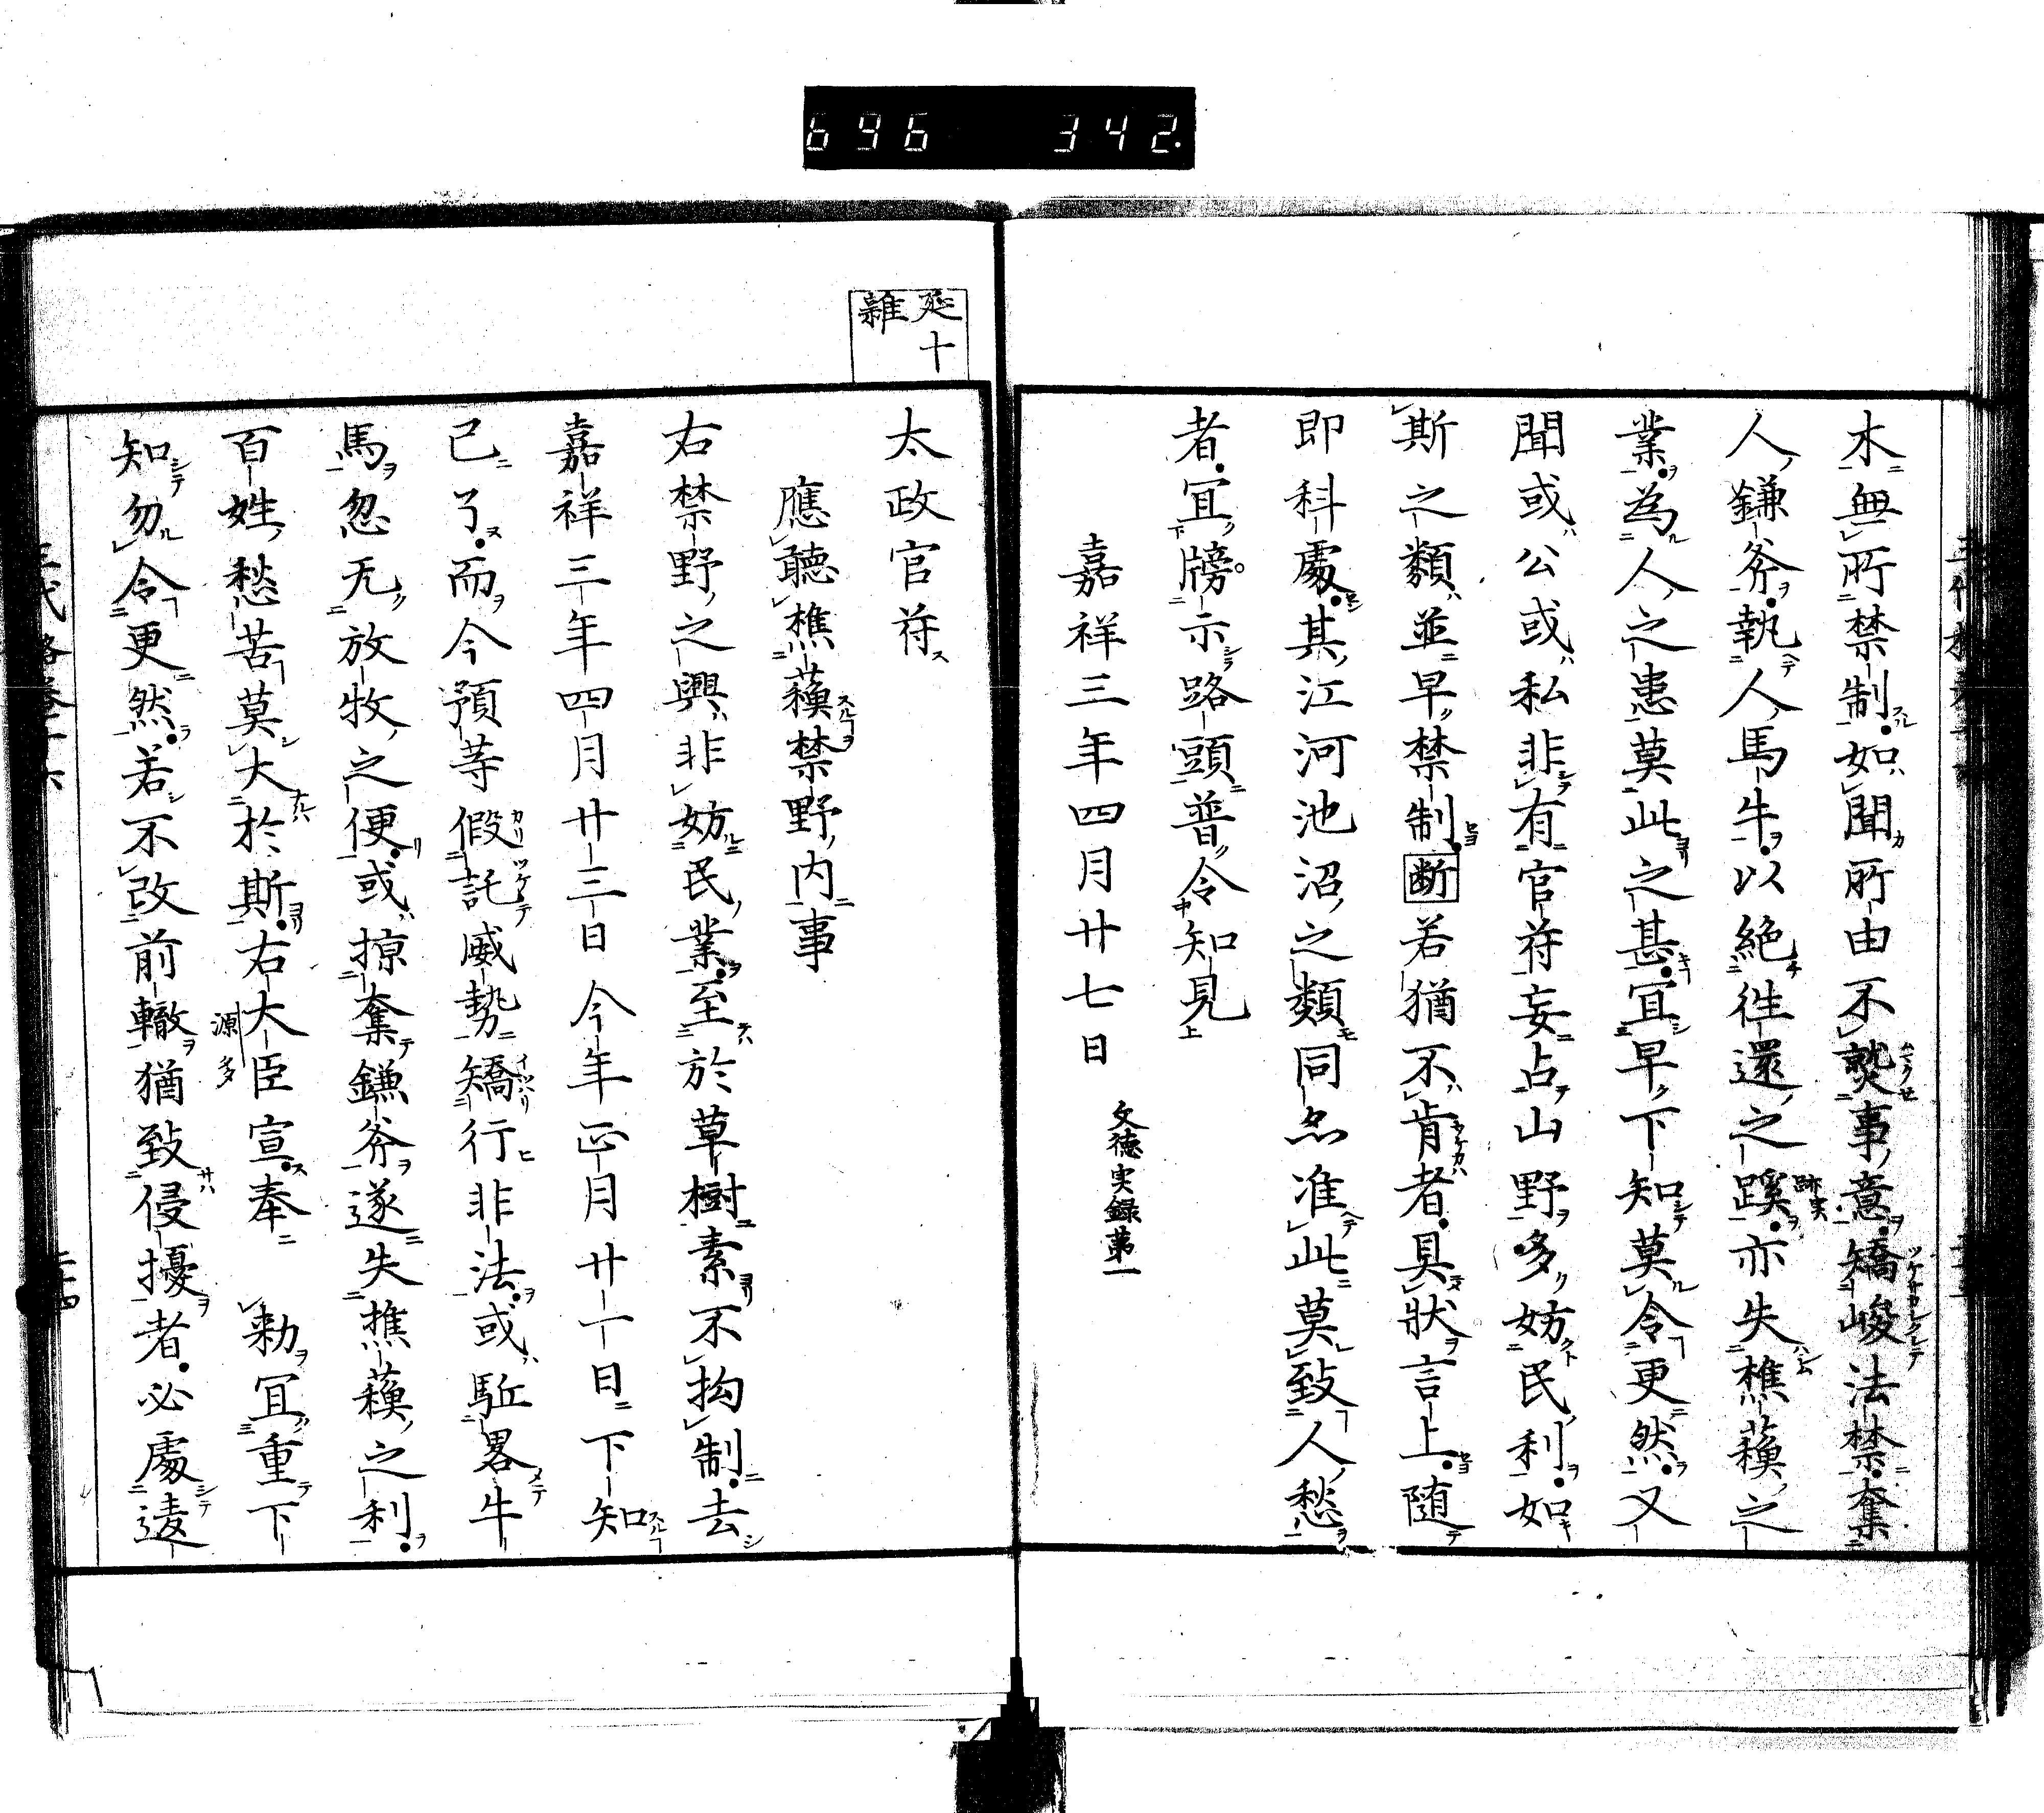 696 342.
木無所禁制如聞所由不熟事意矯峻法禁奪
人鎌斧執人馬牛以絶往還之蹊亦失樵蘓之
業為人之患莫此之甚宜早下知莫令更然又
聞或公或私非有官符妄占山野多妨民利如
斯之類並早禁制断若猶不肯者具状言上随
即科處其江河池沼之類同亦准此莫致人愁
者宜牓示路頭普令知見
嘉祥三年四月廿七日 文徳実録第一
延十
雜
太政官符
應聽樵蘓禁野内事
右禁野之興非妨民業至於草樹素不拘制去
嘉祥三年四月廿三日今年正月廿一日下知
已了而今預等假託威勢矯行非法或駈畧牛
馬忽无放牧之便或掠奪鎌斧遂失樵蘓之利
百姓愁苦莫大於斯右大臣宣奉 勅宜重下
源多
知勿令更然若不改前轍猶致侵擾者必處